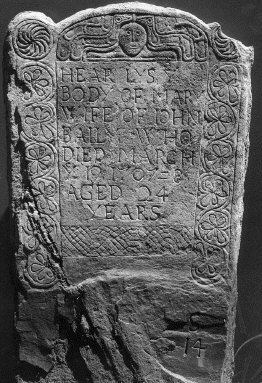 HEAR LYS Yᵉ
BODY OF MARY
WIFE OF IOHN
BAILY WHO
DIED MARCH
AGED 24
YEARS
14